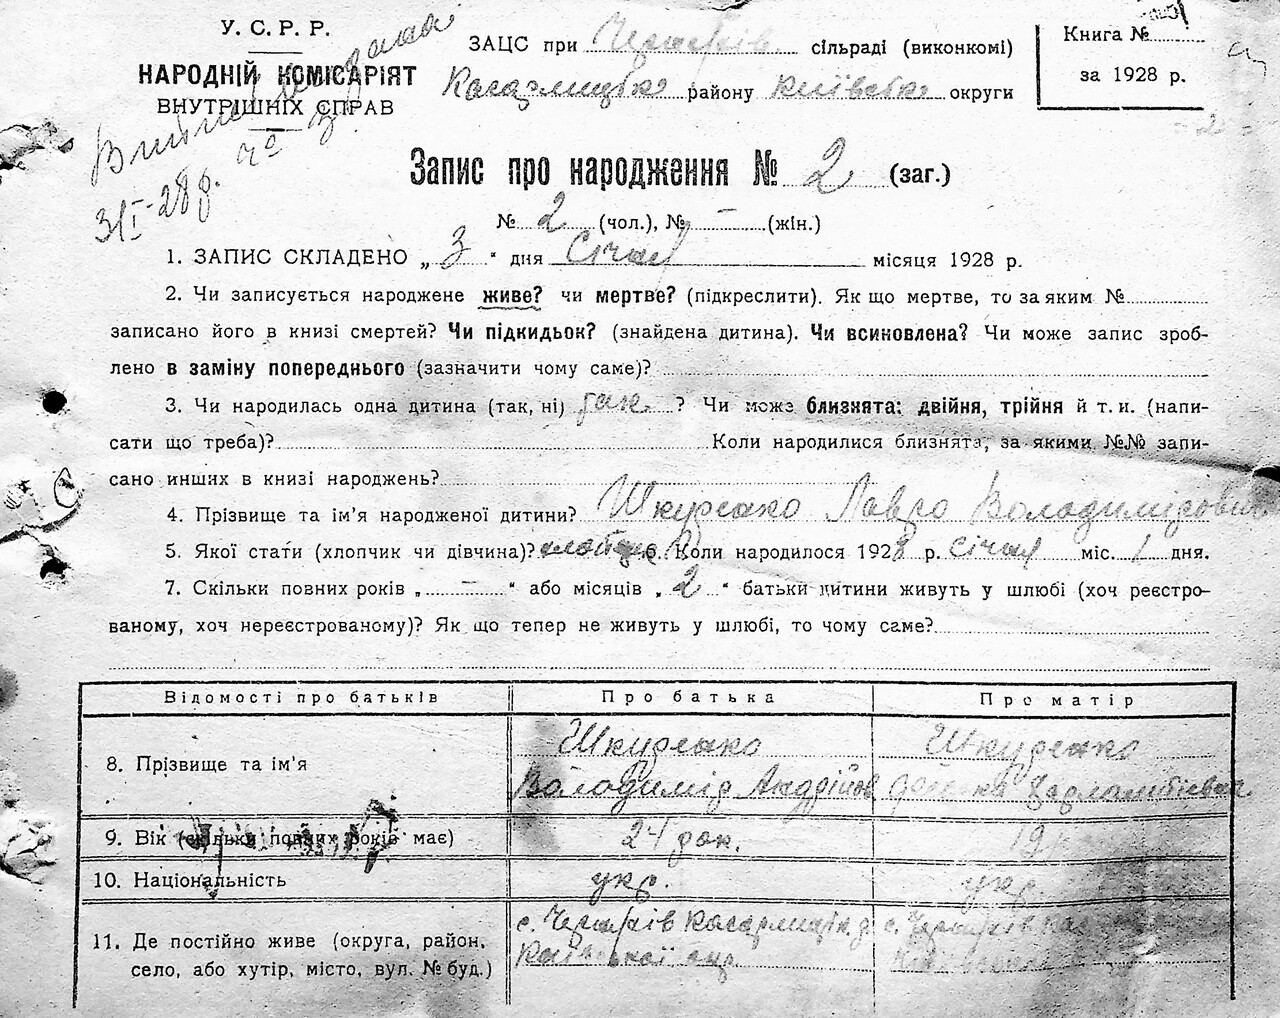 У. С. Р. Р.
НАРОДНІЙ КОМІСАРІЯТ
ВНУТРІШНІХ СПРАВ
ЗАЦС при сільраді (виконкомі)
Кагарлицьке району Київське округи
Книга №
за 1928 р.
- 2 -
31/I-28 р.
Запис про народження № 2 (заг.)
№ 2 (чол.), № – (жін.)
1. ЗАПИС СКЛАДЕНО „ 3 “ дня Січня місяця 1928 р.
2. Чи записується народжене живе? чи мертве? (підкреслити). Як що мертве, то за яким №
записано його в книзі смертей? Чи підкидьок? (знайдена дитина). Чи всиновлена? Чи може запис зроб-
лено в заміну попереднього (зазначити чому саме)?
3. Чи народилась одна дитина (так, ні) так ? Чи може близнята: двійня, трійня й т. и. (напи-
сати що треба)? Коли народилися близнята, за якими №№ запи-
сано инших в книзі народжень?
4. Прізвище та ім'я народженої дитини? Шкуренко Лавро Володимирович
5. Якої стати (хлопчик чи дівчина)? 6. Коли народилося 1928 р. січня міс. 1 дня.
7. Скільки повних років „ – “ або місяців „ 2 “ батьки дитини живуть у шлюбі (хоч реєстро-
ваному, хоч нереєстрованому)? Як що тепер не живуть у шлюбі, то чому саме?
Відомості про батьків Про батька Про матір
8. Прізвище та ім'я Шкуренко Володимір Андрійов Шкуренко
9. Вік (скільки повних років має) 24 рок. 19
10. Національність укр. укр.
11. Де постійно живе (округа, район,
село, або хутір, місто, вул. № буд.)
Київської окр.